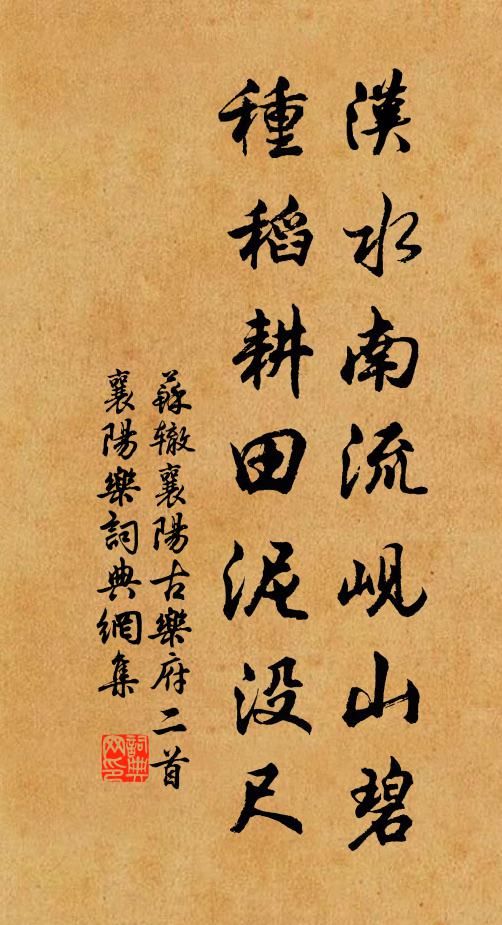 漢水南流峴山碧
種稻耕田泥没尺
蘇轍襄陽古樂府二首
襄陽樂詞典網集
詞典
网印